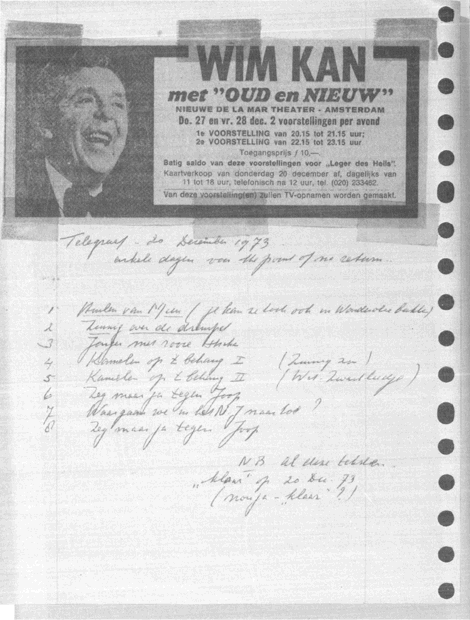 WIM KAN
met "OUD en NIEUW"
NIEUWE DE LA MAR THEATER - AMSTERDAM
Do. 27 en vr. 28 dec. 2 voorstellingen per avond
1e VOORSTELLING van 20.15 tot 21.15 uur;
2e VOORSTELLING van 22.15 tot 23.15 uur
Toegangsprijs f 10,—.
Batig saldo van deze voorstellingen voor „Leger des Heils".
Kaartverkoop van donderdag 20 december af, dagelijks van
11 tot 16 uur; telefonisch na 12 uur, tel. (020) 233462.
Van deze voorstelling(en) zullen TV-opnamen worden gemaakt.
Telegraaf - 20 December 1973
enkele dagen voor the point of no return
1 van ( je kan ze toch ook in
2 Zuinig over de drempel
3 Jongen met rooie
4 Kamelen op 't behang I (Zuinig an)
5 Kamelen op 't behang II (Wit
6 Zeg maar ja tegen Joop
7 Waar gaan we in het N J naar toe?
8 Zeg maar ja tegen Joop
NB al deze teksten
„klaar" op 20 Dec. 73
(nou ja - „klaar" ?!)